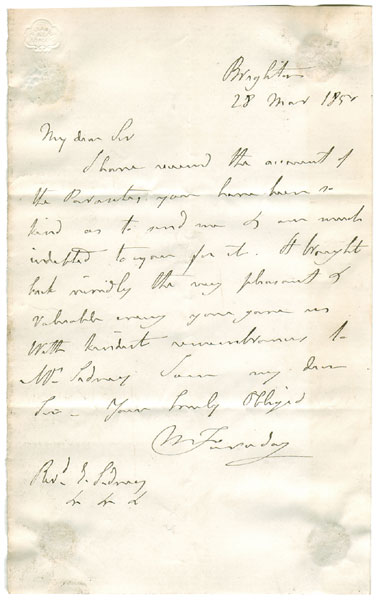 Brighton
28 Mar 185
My dear Sir
I have received the account of
the Parasites you have been so
kind as to send me & am much
indebted to you for it. It brought
back vividly the very pleasant &
valuable evening you gave us
With kindest remembrances to
Mrs Sidney I am my dear
Sir Your Truly Obliged
M Faraday
Revd E. Sidney
&c &c &c